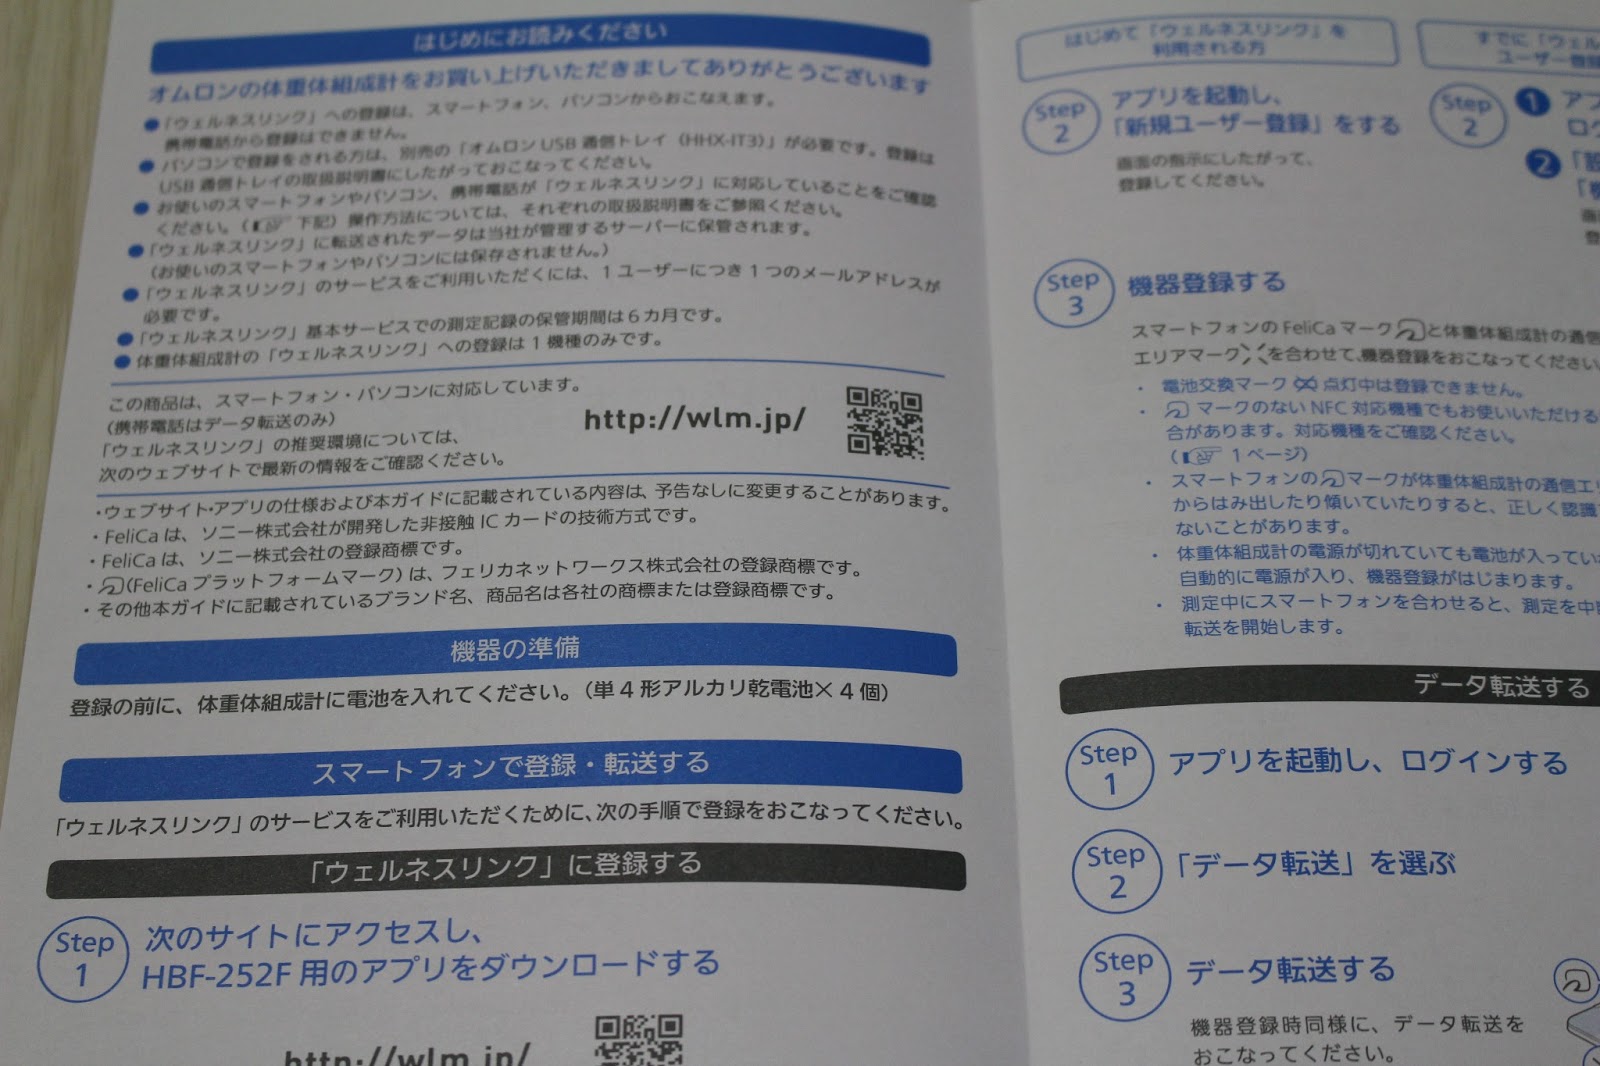 はじめにお読みください
オムロンの体重体組成計をお買い上げいただきましてありがとうございます
●「ウェルネスリンク」への登録は、スマートフォン、パソコンからおこなえます。
携帯電話から登録はできません。
● パソコンで登録をされる方は、別売の「オムロン USB 通信トレイ（HHX-IT3）」が必要です。登録は
USB 通信トレイの取扱説明書にしたがっておこなってください。
● お使いのスマートフォンやパソコン、携帯電話が「ウェルネスリンク」に対応していることをご確認
ください。（☞ 下記）操作方法については、それぞれの取扱説明書をご参照ください。
●「ウェルネスリンク」に転送されたデータは当社が管理するサーバーに保管されます。
（お使いのスマートフォンやパソコンには保存されません。）
●「ウェルネスリンク」のサービスをご利用いただくには、1 ユーザーにつき 1 つのメールアドレスが
必要です。
●「ウェルネスリンク」基本サービスでの測定記録の保管期間は 6 カ月です。
● 体重体組成計の「ウェルネスリンク」への登録は 1 機種のみです。
この商品は、スマートフォン・パソコンに対応しています。
（携帯電話はデータ転送のみ）
「ウェルネスリンク」の推奨環境については、
次のウェブサイトで最新の情報をご確認ください。
http://wlm.jp/
・ウェブサイト・アプリの仕様および本ガイドに記載されている内容は、予告なしに変更することがあります。
・FeliCa は、ソニー株式会社が開発した非接触 IC カードの技術方式です。
・FeliCa は、ソニー株式会社の登録商標です。
・(FeliCa プラットフォームマーク) は、フェリカネットワークス株式会社の登録商標です。
・その他本ガイドに記載されているブランド名、商品名は各社の商標または登録商標です。
機器の準備
登録の前に、体重体組成計に電池を入れてください。（単 4 形アルカリ乾電池× 4 個）
スマートフォンで登録・転送する
「ウェルネスリンク」のサービスをご利用いただくために、次の手順で登録をおこなってください。
「ウェルネスリンク」に登録する
Step 1
次のサイトにアクセスし、
HBF-252F 用のアプリをダウンロードする
http://wlm.jp/
はじめて「ウェルネスリンク」を
利用される方
Step 2
アプリを起動し、
「新規ユーザー登録」をする
画面の指示にしたがって、
登録してください。
すでに「ウェル
ユーザー登録
Step 2
❶ アプ
ログ
❷ 「設
「機
画
登
Step 3
機器登録する
スマートフォンの FeliCa マーク と体重体組成計の通信
エリアマーク を合わせて、機器登録をおこなってください。
・ 電池交換マーク 点灯中は登録できません。
・ マークのない NFC 対応機種でもお使いいただける
合があります。対応機種をご確認ください。
（☞ 1 ページ）
・ スマートフォンの マークが体重体組成計の通信エリ
からはみ出したり傾いていたりすると、正しく認識
ないことがあります。
・ 体重体組成計の電源が切れていても電池が入ってい
自動的に電源が入り、機器登録がはじまります。
・ 測定中にスマートフォンを合わせると、測定を中
転送を開始します。
データ転送する
Step 1
アプリを起動し、ログインする
Step 2
「データ転送」を選ぶ
Step 3
データ転送する
機器登録時同様に、データ転送を
おこなってください。